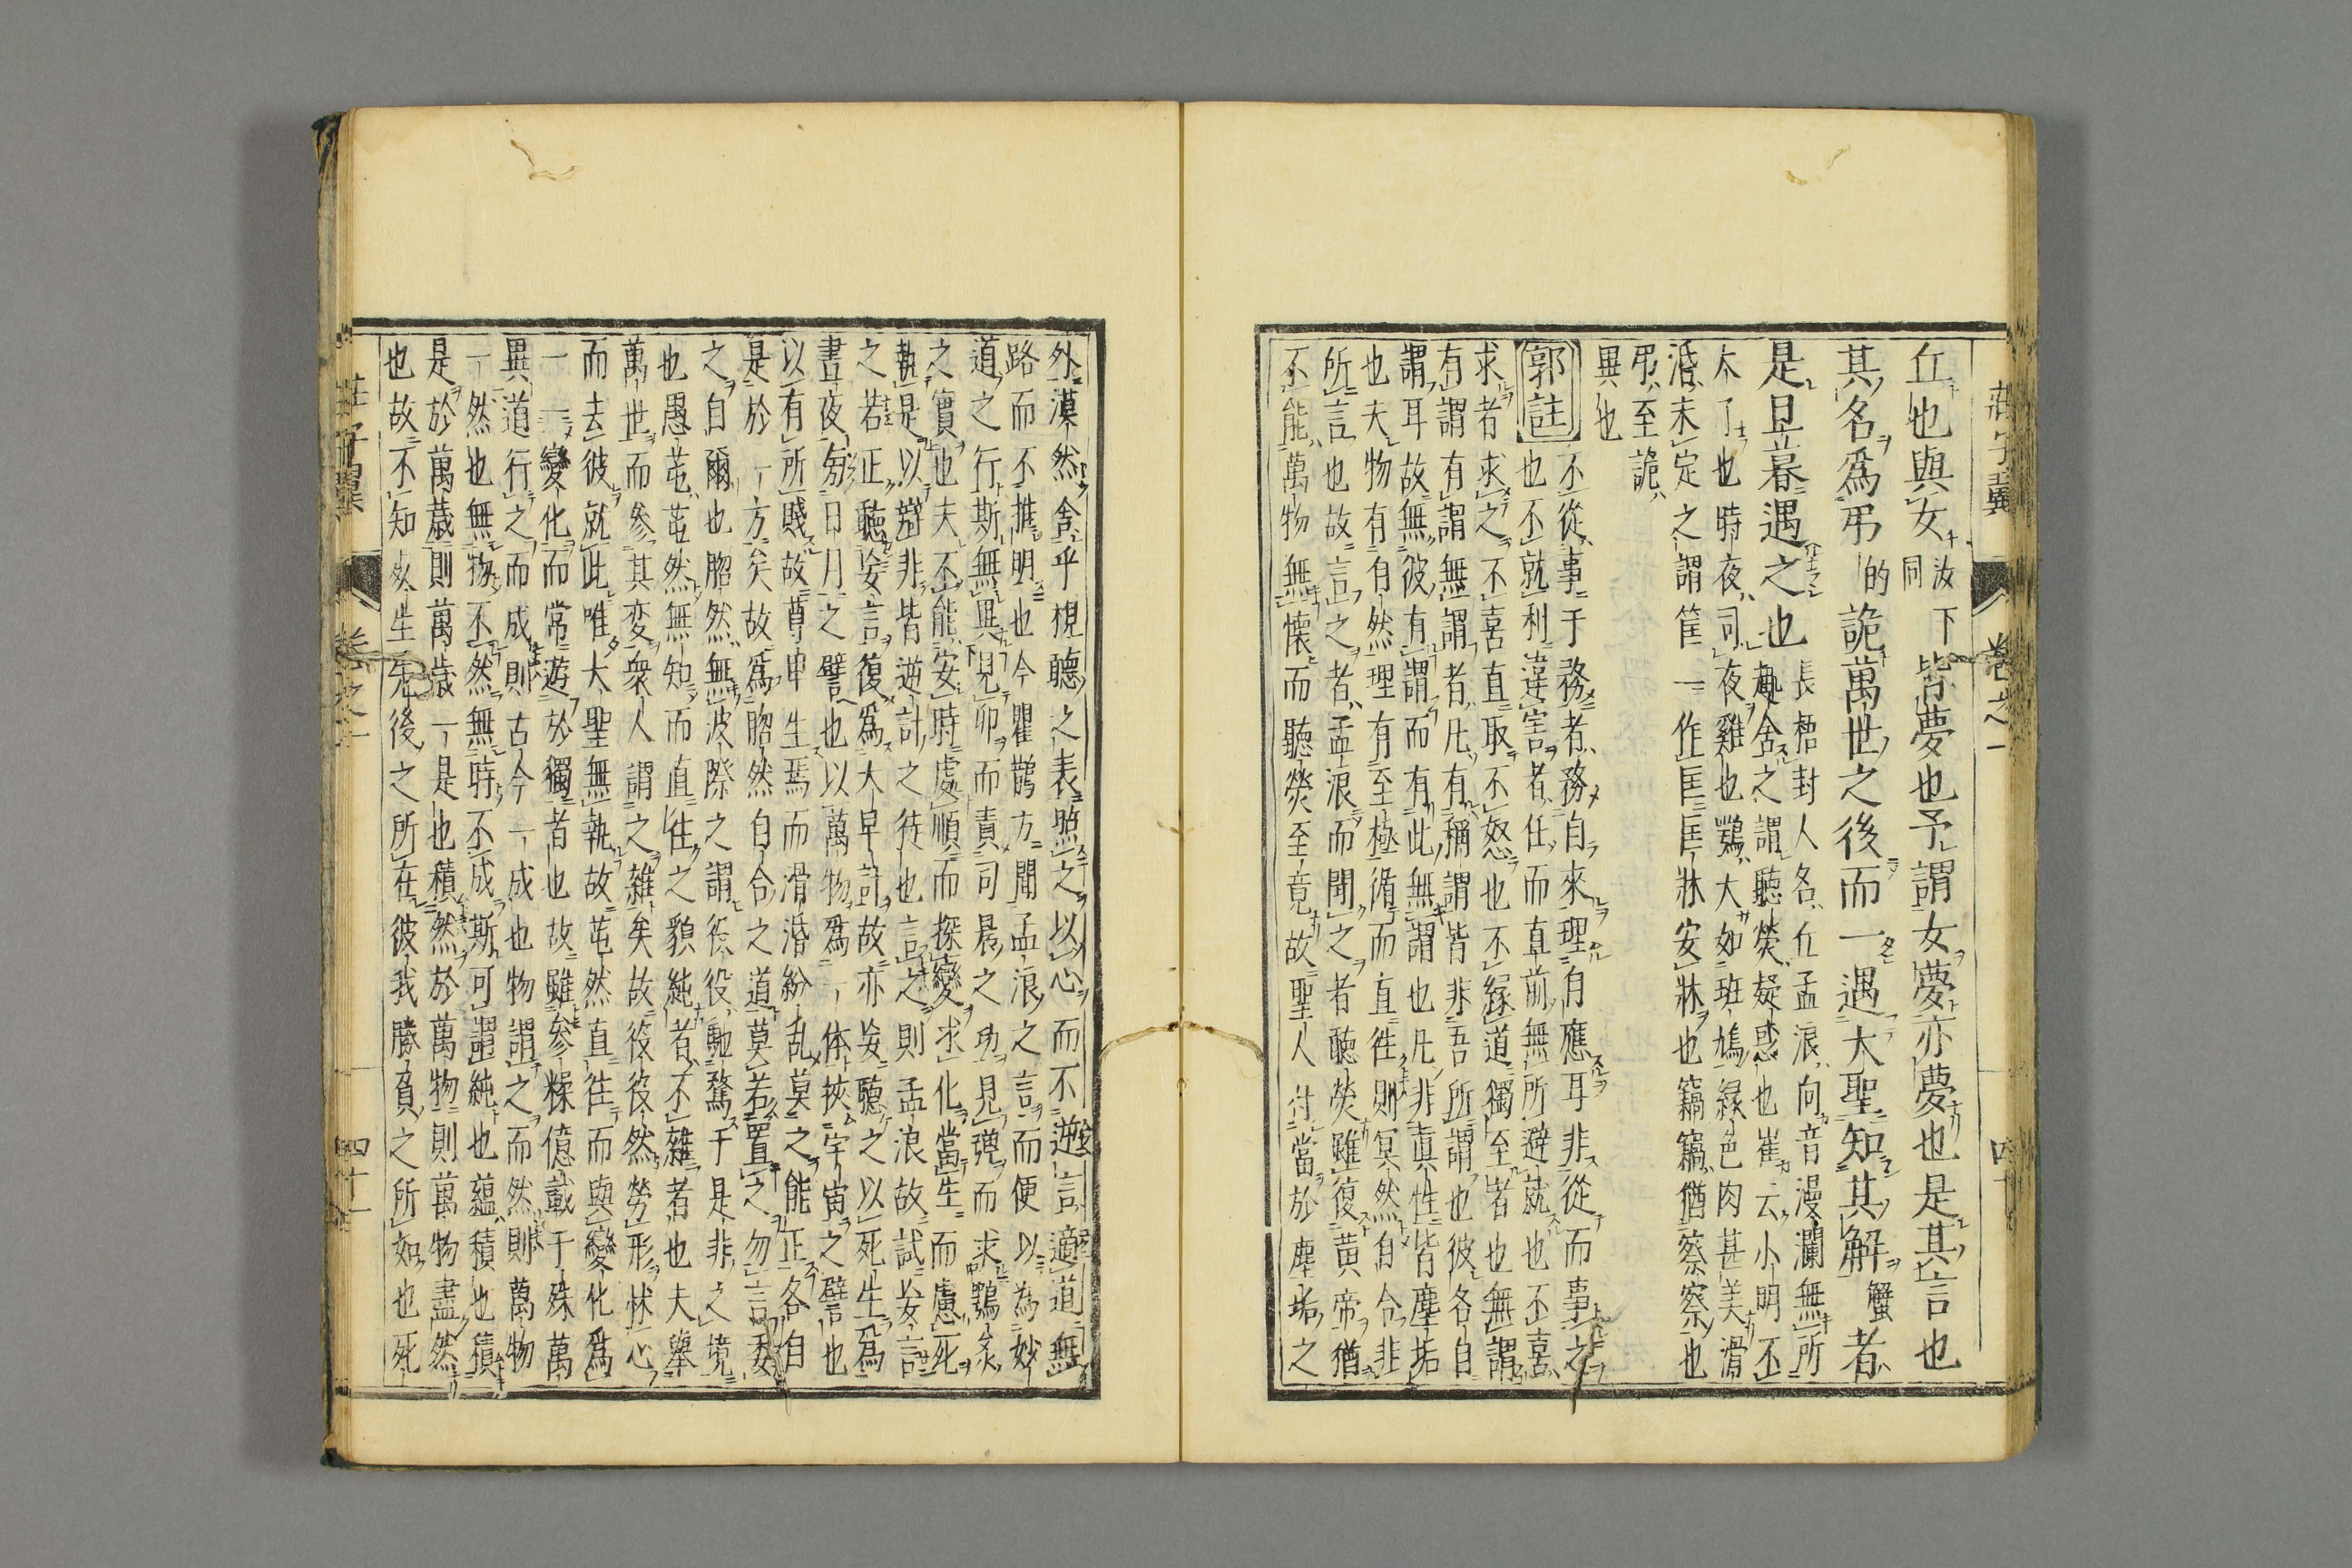 莊子翼 卷之一 四十
丘也與女汝同下皆夢也予謂女夢亦夢也是其言也
其名爲弔的詭萬世之後而一遇大聖知其解蟹者
是旦暮遇之也長梧封人名丘孟浪向音漫瀾無所
趣舍之謂聽熒疑惑也崔云小明不
大了也時夜司夜雞也鴞大如班鳩緑色肉甚美滑
湣未定之謂筐一作匡匡牀安牀也竊竊猶察察也
弔至詭
異也
郭註不從事于務者務自來理自應耳非從而事之
也不就利違害者任而直前無所避就也不喜
求者求之不喜直取不怒也不緣道獨至者也無謂
有謂有謂無謂者凡有稱謂皆非吾所謂也彼各自
謂耳故無彼有謂而有此無謂也凡非真性皆塵垢
也夫物有自然理有至極循而直徃則冥然自合非
所言也故言之者孟浪而聞之者聽熒雖復黄帝猶
不能萬物無懷而聽熒至竟故聖人付當於塵垢之
外漠然舍乎視聽之表照之以心而不逆言適道無
路而不摭明也今瞿鵲方聞孟浪之言而便以為妙
道之行斯無異見卵而責司晨之功見彈而求鴞炙
之實也夫不能安時處順而探變求化當生而慮死
執是以辯非皆逆計之徒也言之則孟浪故試妄言
之若正聽妄言復爲大早計故亦妄聽之以死生爲
晝夜旁日月之譬也以萬物爲一体挾宇宙之譬也
以有所賤故尊卑生焉而滑湣紛乱莫之能正各自
是於一方矣故爲脗然自合之道莫若置之勿言委
之自爾也脗然無波際之謂徐役馳騖于是非之境
也愚芚芚然無知而直徃之貌純者不雜者也夫舉
萬世而參其変衆人謂之雜矣故役役然勞形怵心
而去彼就此唯大聖無執故芚然直徃而與變化爲
一一變化而常遊於獨者也故雖參糅億載千殊萬
異道行之而成則古今一成也物謂之而然則萬物
一然也無物不然無時不成斯可謂純也蘊積也積
是於萬歲則萬歲一是也積然於萬物則萬物盡然
也故不知死生先後之所在彼我勝負之所如也死
莊子翼 卷之一 四十一